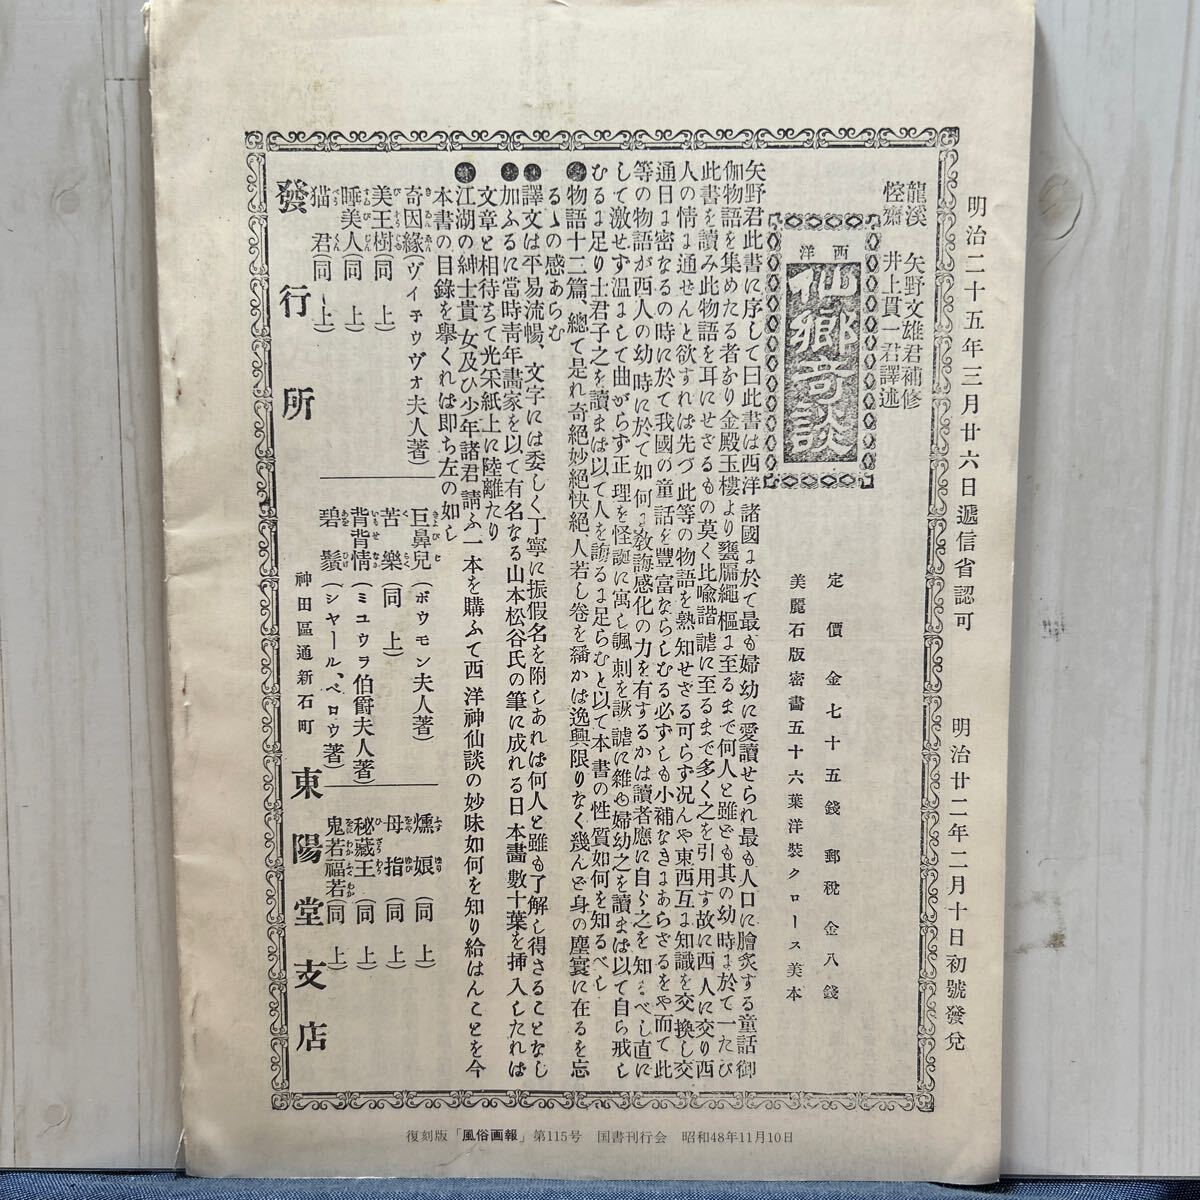 明治二十五年三月廿六日遞信省認可　明治廿二年二月十日初號發兌
龍溪　矢野文雄君補修
悾齋　井上貫一君譯述
西洋
仙郷奇談
定價金七十五錢郵稅金八錢
美麗石版密畵五十六葉洋裝クロース美本
矢野君此書に序して曰此書は西洋諸國に於て最も婦幼に愛讀せられ最も人口に膾炙する童話御
伽物語を集めたる者なり金殿玉樓より甕牖繩樞に至るまで何人と雖ども其の幼時に於て一たび
此書を讀み此物語を耳にせざるもの莫く比喩諧謔に至るまで多く之を引用す故に西人に交り西
人の情に通せんと欲すれは先づ此等の物語を熟知せざる可らず況んや東西互に知識を交換し交
通日に密なるの時に於て我國の童話を豐富ならしむる必ずしも小補なきにあらさるをや而て此
等の物語が西人の幼時に於て如何に敎誨感化の力を有するかは讀者應に自ら之を知るべし直に
して激せず温にして曲がらず正理を怪誕に寓し諷刺を詼謔に雜ゆ婦幼之を讀まば以て自ら戒し
むるに足り士君子之を讀まば以て人を誨るに足らむと以て本書の性質如何を知るべし
●物語十二篇、總て是れ奇絕妙絕快絕、人若し卷を繙かば逸興限りなく幾んど身の塵寰に在るを忘
るゝの感あらむ
●譯文は平易流暢、文字には委しく丁寧に振假名を附しあれば何人と雖も了解し得さることなし
●加ふるに當時靑年畵家を以て有名なる山本松谷氏の筆に成れる日本畵數十葉を挿入したれば
文章と相待ちて光采紙上に陸離たり
●江湖の紳士貴女及ひ少年諸君請ふ一本を購ふて西洋神仙談の妙味如何を知り給はんことを今
本書の目錄を擧くれば即ち左の如し
奇因緣（ヴイチウヴオ夫人著）
美王樹（同上）
睡美人（同上）
猫君（同上）
巨鼻兒（ボウモン夫人著）
苦樂（同上）
背背情（ミユウラ伯爵夫人著）
碧鬚（シヤール、ペロウ著）
燻娘（同上）
母指（同上）
秘藏王（同上）
鬼若福若（同上）
發行所　神田區通新石町　東陽堂支店
復刻版「風俗画報」第115号　国書刊行会　昭和48年11月10日